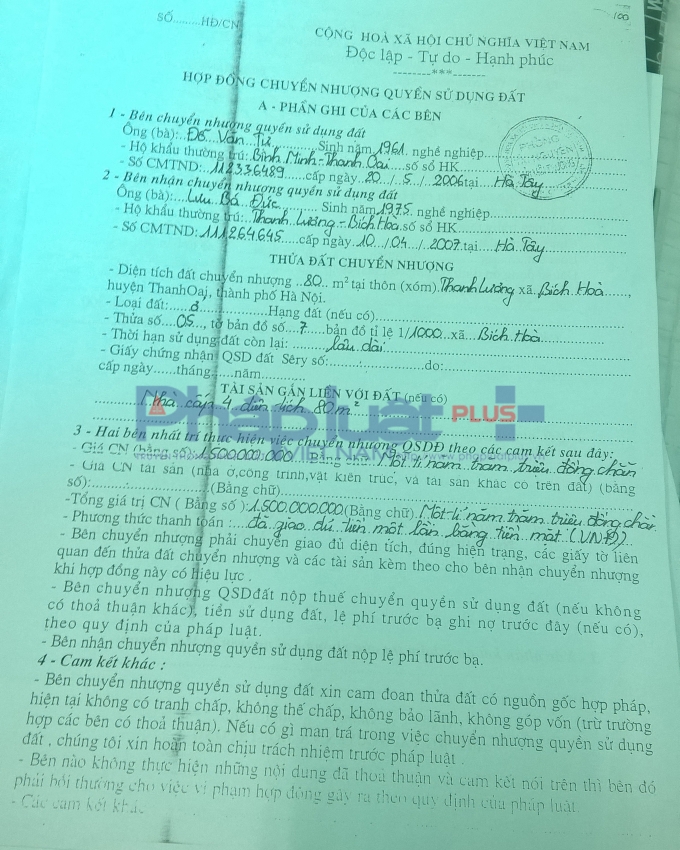 100
SỐ.........HĐ/CN
CỘNG HOÀ XÃ HỘI CHỦ NGHĨA VIỆT NAM
Độc lập - Tự do - Hạnh phúc
--------***-------
HỢP ĐỒNG CHUYỂN NHƯỢNG QUYỀN SỬ DỤNG ĐẤT
A - PHẦN GHI CỦA CÁC BÊN
1 - Bên chuyển nhượng quyền sử dụng đất
Ông (bà):..Đỗ Văn Tứ............Sinh năm 1961. nghề nghiệp..................
- Hộ khẩu thường trú:.Bình Minh - Thanh Oai.....số sổ HK..................
- Số CMTND: 112336489.....cấp ngày 20../..5../..2006 tại....Hà Tây
2 - Bên nhận chuyển nhượng quyền sử dụng đất
Ông (bà):....Lưu Bá Đức............ Sinh năm 1975. nghề nghiệp..................
- Hộ khẩu thường trú: Thanh Lương - Bích Hoà. số sổ HK..................
- Số CMTND: 111264645.....cấp ngày 10../04../..2007. tại....Hà Tây
THỬA ĐẤT CHUYỂN NHƯỢNG
- Diện tích đất chuyển nhượng ..80.. m² tại thôn (xóm) Thanh Lương xã. Bích Hoà......,
huyện ThanhOaị, thành phố Hà Nội.
- Loại đất:.............Hạng đất (nếu có)..................
- Thửa số...05..., tờ bản đồ số...7.....bản đồ tỉ lệ 1/1000...xã.....Bích Hoà
- Thời hạn sử dụng đất còn lại: ........lâu dài..................
- Giấy chứng nhận QSD đất Sêry số:..................do:..................
cấp ngày.....tháng......năm.........
TÀI SẢN GẮN LIỀN VỚI ĐẤT (nếu có)
Nhà cấp 4 diện tích 80m²
Phápluật PLUS+
3 - Hai bên nhất trí thực hiện việc chuyển nhượng QSDĐ theo các cam kết sau đây:
- Giá CN (bằng số) 1500.000.000 Một tỉ năm trăm triệu đồng chẵn
- Giá CN tài sản (nhà ở,công trình,vật kiến trúc, và tài sản khác có trên đất) (bằng
số):..................(Bằng chữ)..................
-Tổng giá trị CN ( Bằng số ):1.500.000.000(Bằng chữ). Một tỉ năm trăm triệu đồng chẵn
- Phương thức thanh toán :....đã giao đủ tiền một lần bằng tiền mặt (VNĐ)
- Bên chuyển nhượng phải chuyển giao đủ diện tích, đúng hiện trạng, các giấy tờ liên
quan đến thửa đất chuyển nhượng và các tài sản kèm theo cho bên nhận chuyển nhượng
khi hợp đồng này có hiệu lực .
- Bên chuyển nhượng QSDđất nộp thuế chuyển quyền sử dụng đất (nếu không
có thoả thuận khác), tiền sử dụng đất, lệ phí trước bạ ghi nợ trước đây (nếu có),
theo quy định của pháp luật.
- Bên nhận chuyển nhượng quyền sử dụng đất nộp lệ phí trước bạ.
4 - Cam kết khác :
- Bên chuyển nhượng quyền sử dụng đất xin cam đoan thửa đất có nguồn gốc hợp pháp,
hiện tại không có tranh chấp, không thế chấp, không bảo lãnh, không góp vốn (trừ trường
hợp các bên có thoả thuận). Nếu có gì man trá trong việc chuyển nhượng quyền sử dụng
đất , chúng tôi xin hoàn toàn chịu trách nhiệm trước pháp luật .
- Bên nào không thực hiện những nội dung đã thoả thuận và cam kết nói trên thì bên đó
phải bồi thường cho việc vi phạm hợp đồng gây ra theo quy định của pháp luật.
- Các cam kết khác